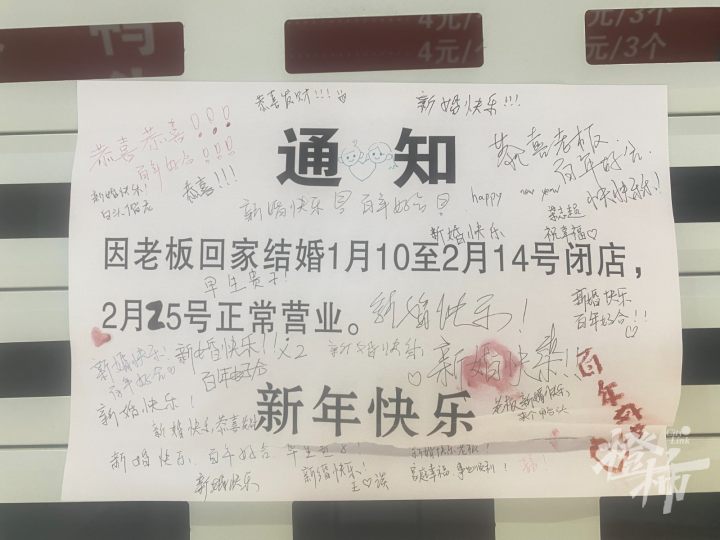 4元/
元/3个
4元/
元/3个
恭喜发财!!!
新婚快乐!!!
恭喜恭喜!!!
百年好合!!!
通知
恭喜老板
百年好合
新婚快乐!
白头偕老
恭喜!!!
新婚快乐
百年好合
happy new year
快快乐乐!
新婚快乐
祝幸福♡
因老板回家结婚1月10至2月14号闭店，
早生贵子!
2月25号正常营业。
新婚快乐!
新婚快乐
百年好合!!!
新婚快乐!
百年好合
新婚快乐!!×2
百年好合
新婚快乐
♡新婚快乐!!
百年好合
新年快乐
新婚快乐!
新婚快乐恭喜发财
老板新婚快乐
新婚快乐 百年好合 早生贵子!
新婚快乐
新婚快乐!
王♡
新婚快乐老板!
家庭幸福 事业顺利!
橙柿
Citi
Link